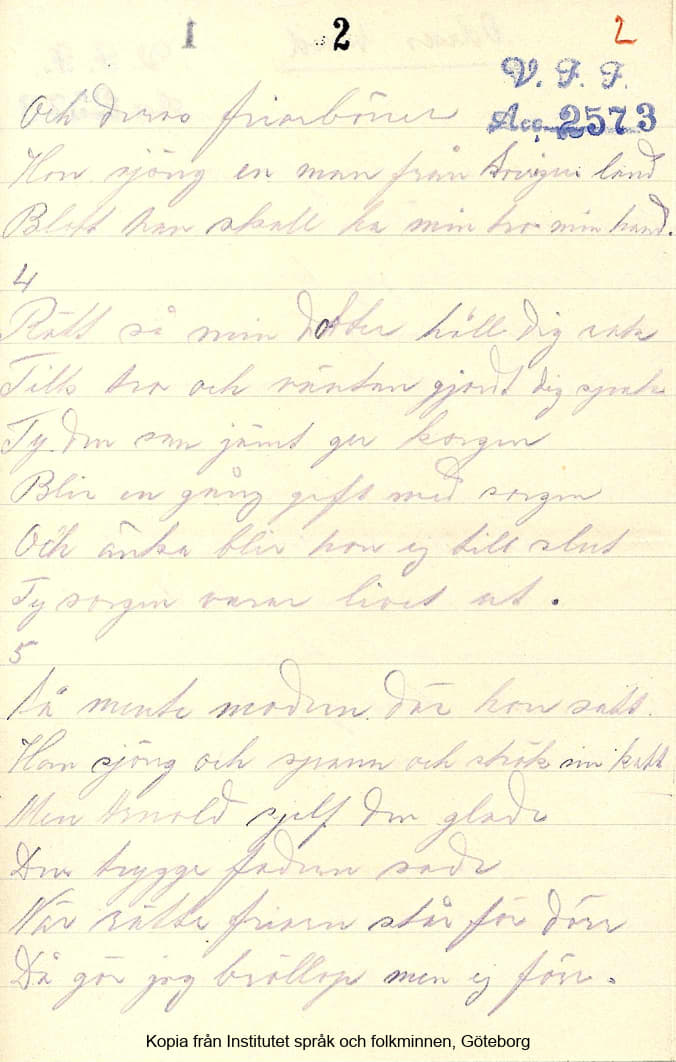 1 2 2
V. F. F.
Acc. 2573
Och deras friarböner
Hon sjöng en man från Sveriges land
Blott han skall ha min tro min hand.
4
Rätt så min dotter håll dig rak
Tills tro och väntan gjort dig spak
Ty den som jämt ger korgen
Blir en gång gift med sorgen
Och änka blir hon ej till slut
Ty sorgen varar livet ut.
5
Så mente modern där hon satt
Hon sjöng och spann och strök sin katt
Men Arnold sjelf den glade
Den trygge fadern sade
När rätte friaren står för dörr
Då gör jag bröllop men ej förr.
Kopia från Institutet språk och folkminnen, Göteborg